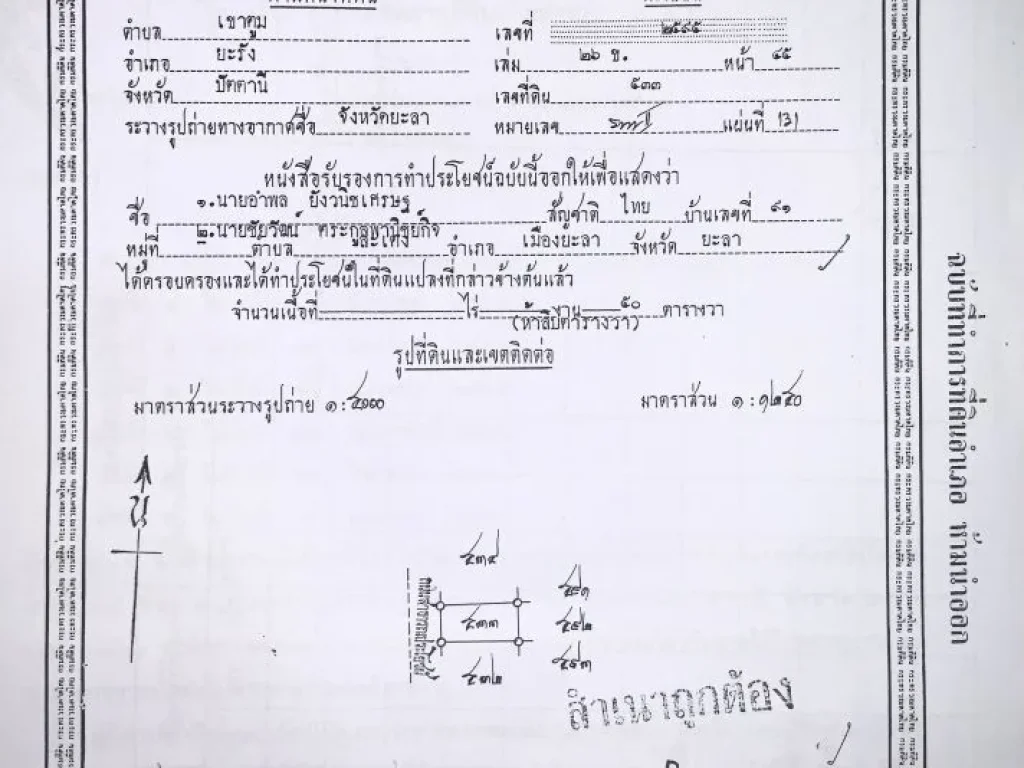 ตำบล เขาตูม เลขที่ ๒๕๙๕
อำเภอ ยะรัง เล่ม ๒๖ ข. หน้า ๔๕
จังหวัด ปัตตานี เลขที่ดิน ๕๓๓
ระวางรูปถ่ายทางอากาศชื่อ จังหวัดยะลา หมายเลข แผ่นที่ 131
หนังสือรับรองการทำประโยชน์ฉบับนี้ออกให้เพื่อแสดงว่า
ชื่อ ๑.นายอำพล ยังวนิชเศรษฐ สัญชาติ ไทย บ้านเลขที่ ๙๑
๒.นายชัยวัฒน์ ตระกูลพานิชย์กิจ
หมู่ที่ - ตำบล สะเตง อำเภอ เมืองยะลา จังหวัด ยะลา
ได้ครอบครองและได้ทำประโยชน์ในที่ดินแปลงที่กล่าวข้างต้นแล้ว
จำนวนเนื้อที่ ไร่ งาน ๕๐ ตารางวา
(ห้าสิบตารางวา)
รูปที่ดินและเขตติดต่อ
มาตราส่วนระวางรูปถ่าย ๑: มาตราส่วน ๑ : ๑๒๕๐
น
๕๓๔
๕๓๓
๕๓๒
๕๕๑
๕๕๒
๕๕๓
สำเนาถูกต้อง
ฉบับที่ทำการที่ดินอำเภอ ห้ามนำออก